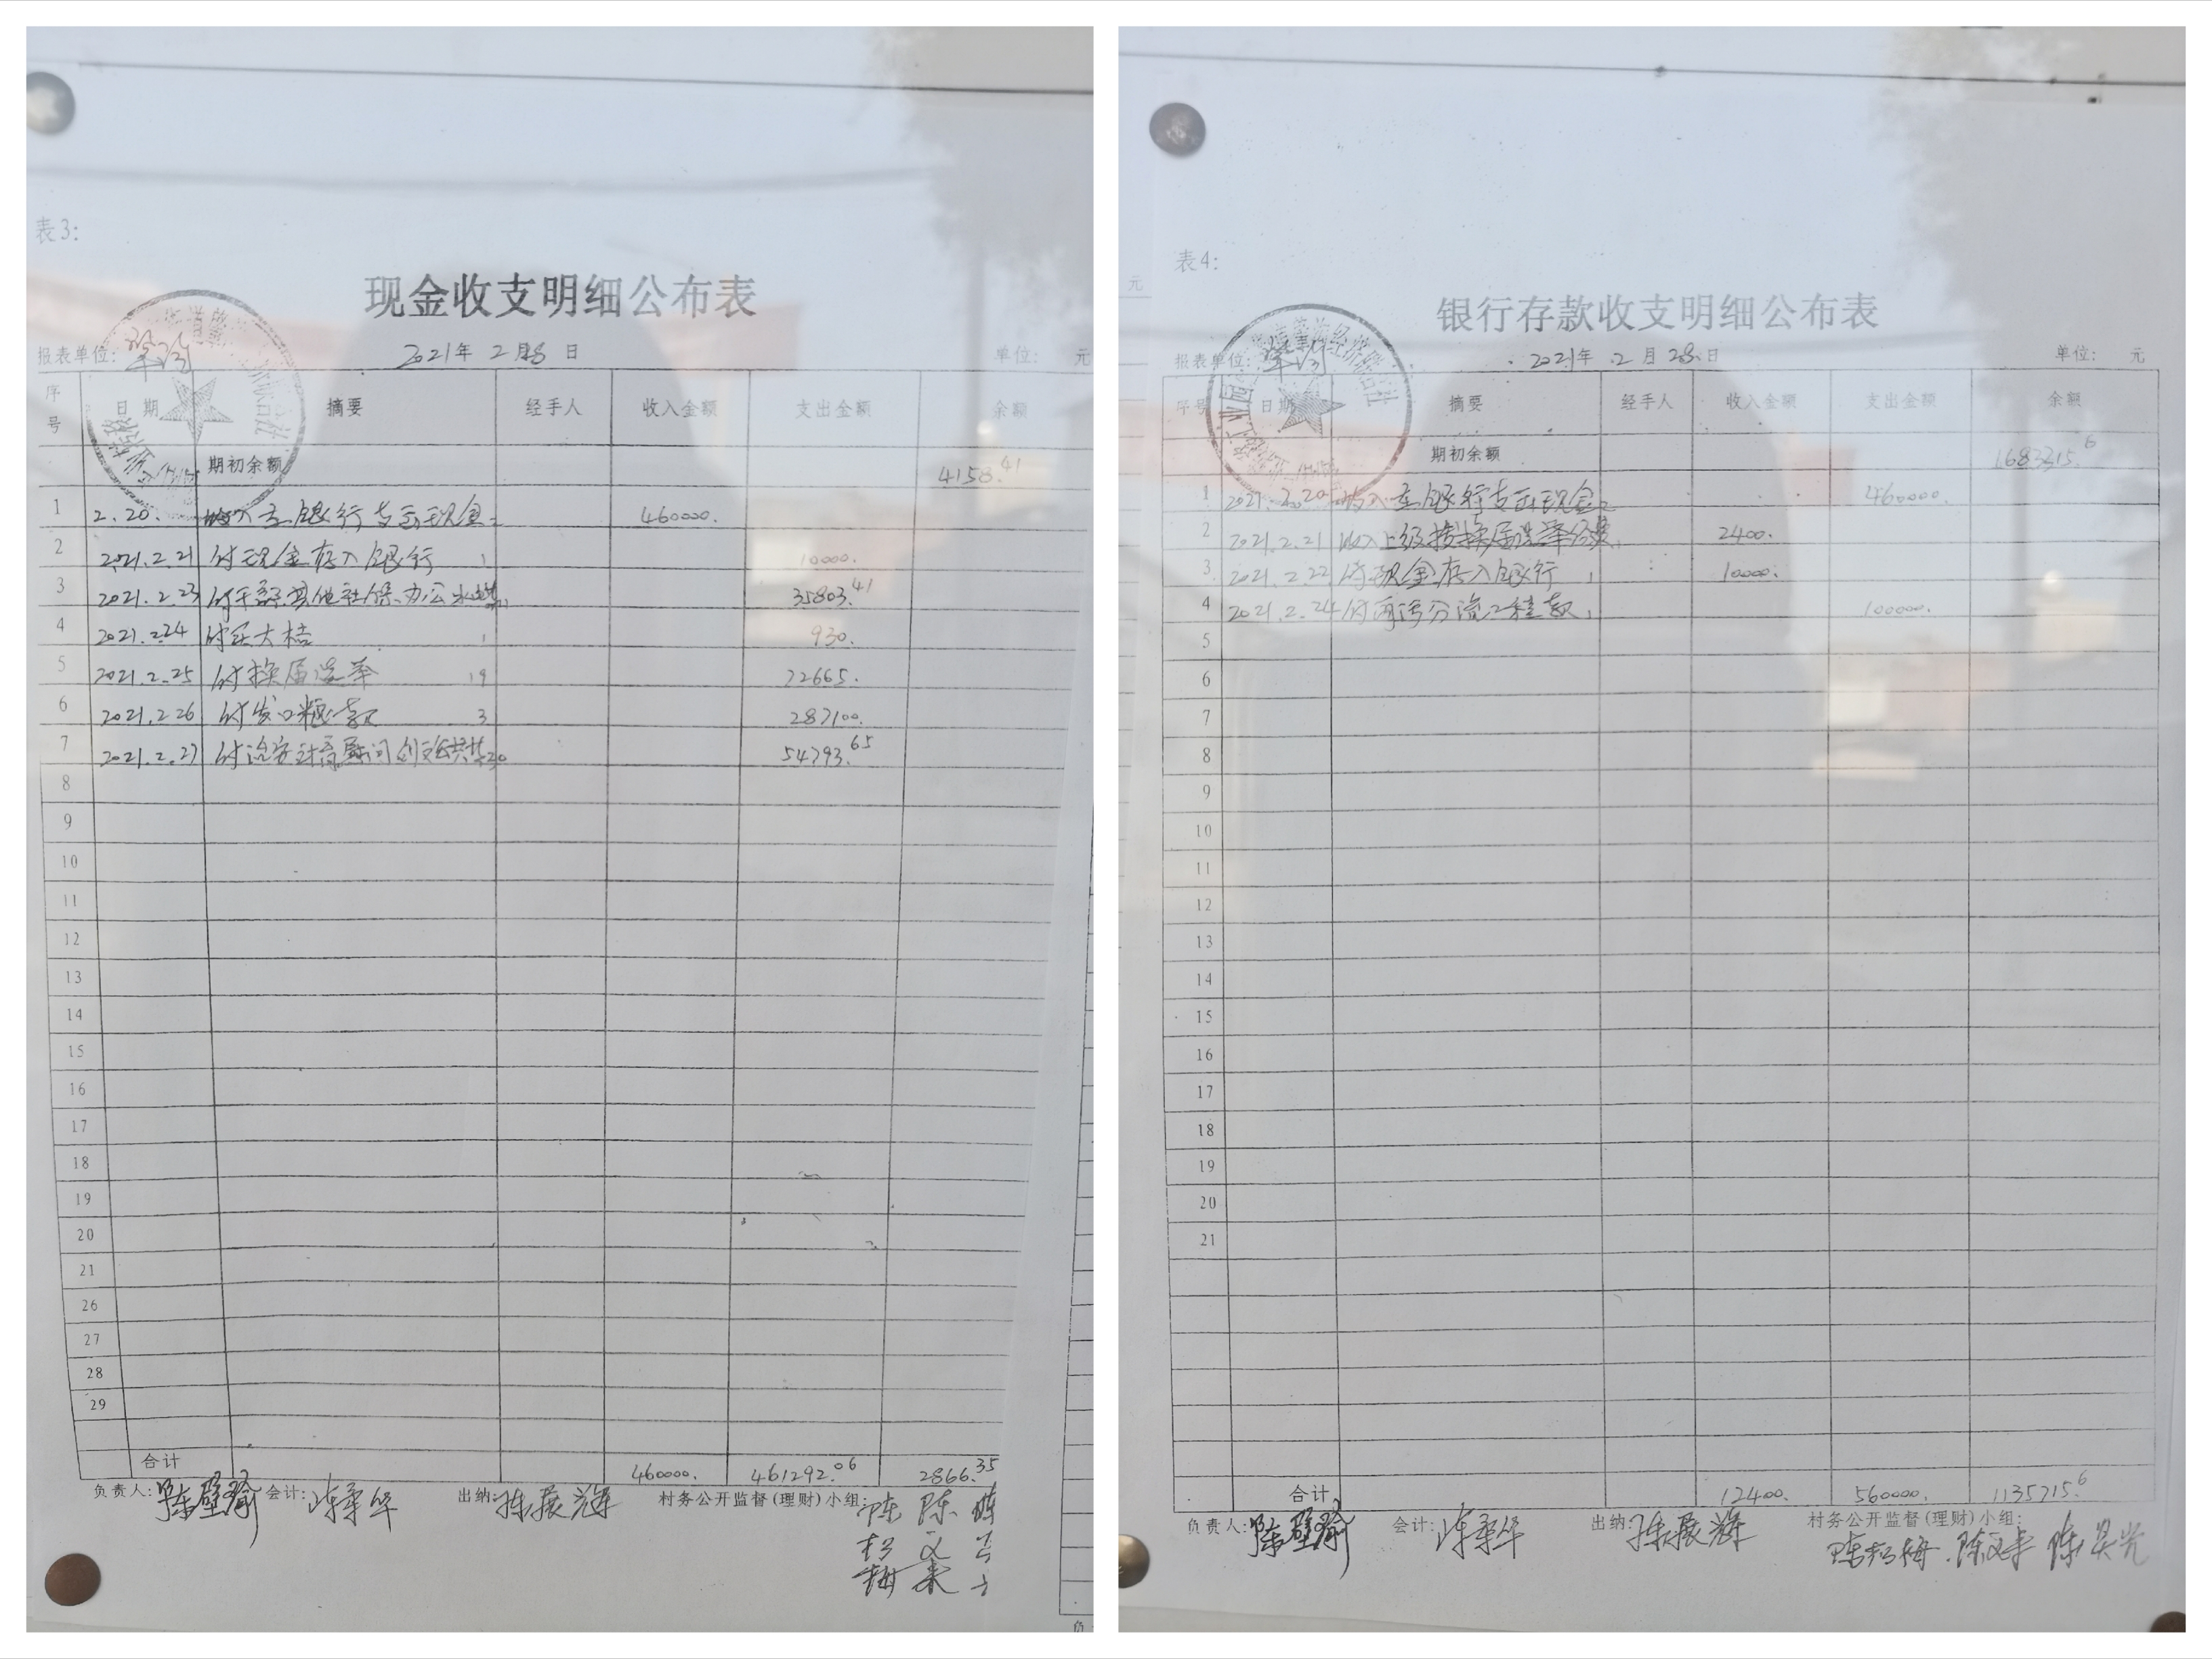 表3:
现金收支明细公布表
报表单位: 2021年 2月28日 单位: 元
序号 日期 摘要 经手人 收入金额 支出金额 余额
期初余额 4158.41
1 2.20. 收入去银行支出现金 2 460000.
2 2021.2.21 付现金存入银行 1 10000.
3 2021.2.23 付干部其他社保、办公水电 35803.41
4 2021.2.24 付买大桔 1 930.
5 2021.2.25 付换届选举 19 72665.
6 2021.2.26 付发口粮款 3 287100.
7 2021.2.27 付治安计育慰问 54793.65
8
9
10
11
12
13
14
15
16
17
18
19
20
21
26
27
28
29
合计 460000. 461292.06 2866.35
负责人: 陈壁瑜 会计: 出纳: 陈展辉 村务公开监督(理财)小组:
表4:
银行存款收支明细公布表
报表单位: 2021年 2月 28日 单位: 元
序号 日期 摘要 经手人 收入金额 支出金额 余额
期初余额 1683315.6
1 2021.2.20 收入去银行支出现金 2 460000.
2 2021.2.21 收入上级拨换届选举经费 2400.
3 2021.2.22 付现金存入银行 1 10000.
4 2021.2.24 付雨污分流工程款 1 100000.
5
6
7
8
9
10
11
12
13
14
15
16
17
18
19
20
21
合计 12400. 560000. 1135715.6
负责人: 陈壁瑜 会计: 出纳: 陈展辉 村务公开监督(理财)小组: